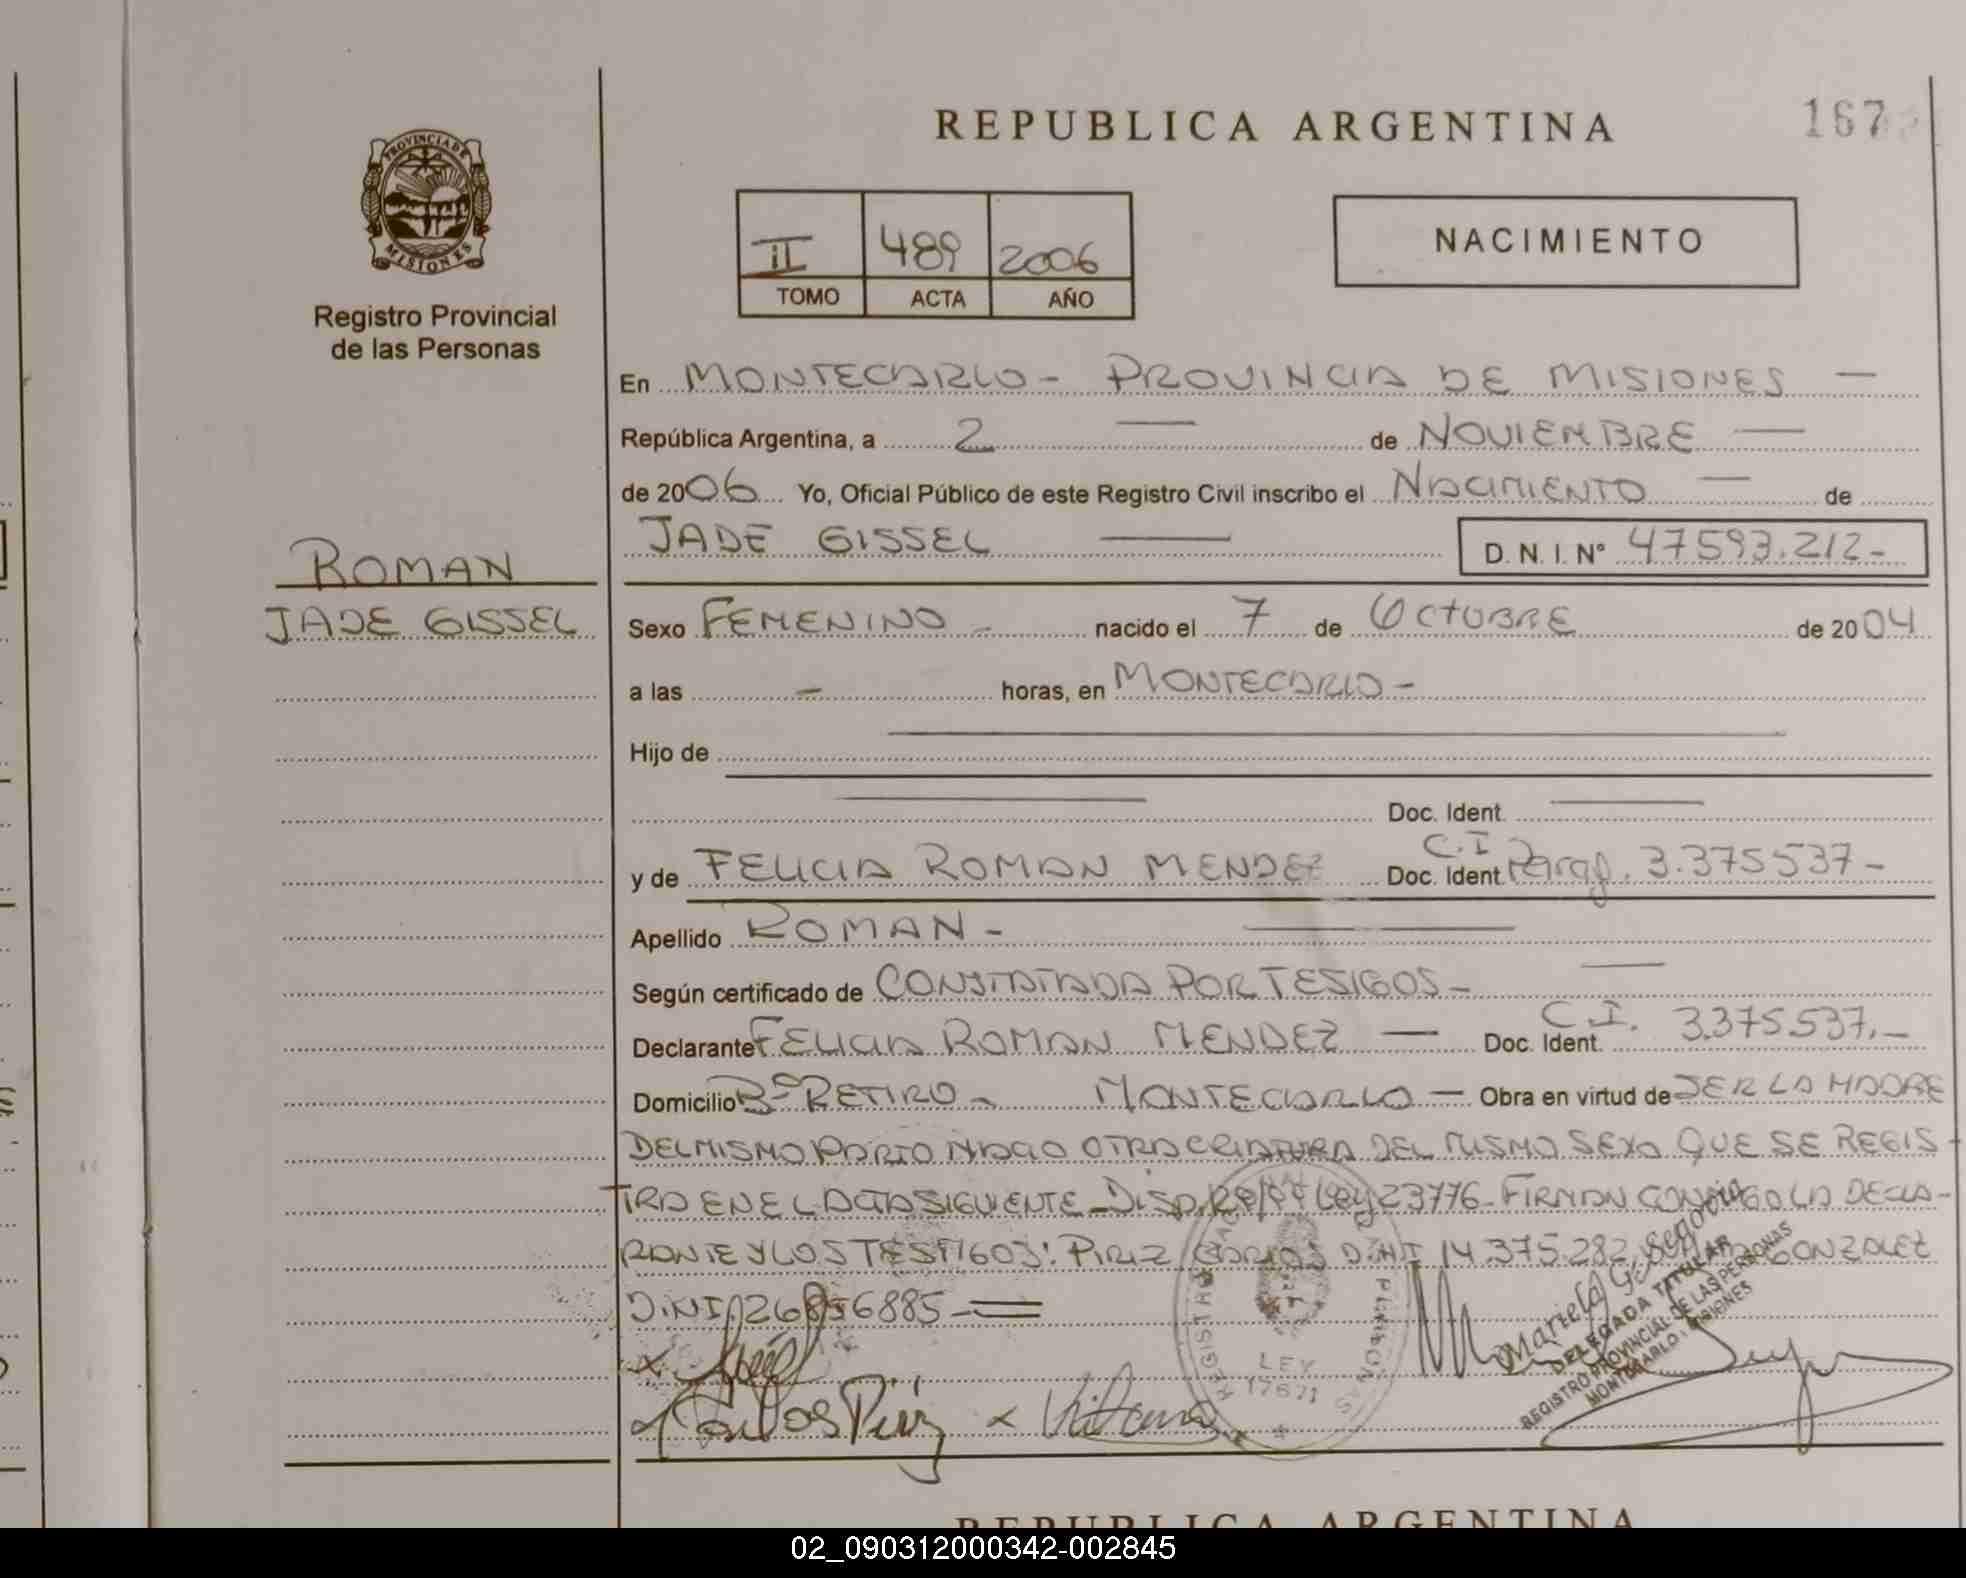 REPUBLICA ARGENTINA
167
PROVINCIA DE
MISIONES
Registro Provincial
de las Personas
II 489 2006
TOMO ACTA AÑO
NACIMIENTO
En MONTECARLO - PROVINCIA DE MISIONES —
República Argentina, a 2 — de NOVIEMBRE —
de 2006 Yo, Oficial Público de este Registro Civil inscribo el NACIMIENTO — de
JADE GISSEL — D. N. I. Nº 47593.212-
ROMAN
JADE GISSEL
Sexo FEMENINO - nacido el 7 de OCTUBRE de 2004
a las - horas, en MONTECARLO -
Hijo de —
— Doc. Ident. —
y de FELICIA ROMAN MENDEZ Doc. Ident. C.I Parag. 3.375537-
Apellido ROMAN - —
Según certificado de CONSTATADA POR TESIGOS - —
Declarante FELICIA ROMAN MENDEZ — Doc. Ident. C.I. 3.375.537.-
Domicilio Bº RETIRO - MONTECARLO — Obra en virtud de SER LA MADRE
DEL MISMO PARTO NACIO OTRA CRIATURA DEL MISMO SEXO QUE SE REGIS-
TRA EN EL ACTA SIGUIENTE - Disp. Ley 23776 - FIRMAN CONMIGO LA DECLA-
RANTE Y LOS TESTIGOS: PIRIZ CARLOS D.N.I 14.375.282 GONZALEZ
D.N.I. 26856885 -
x
x Carlos Piriz x
REGISTRO NACIONAL DE LAS PERSONAS
LEY
17671
Mariela G. Segovia
DELEGADA TITULAR
REGISTRO PROVINCIAL DE LAS PERSONAS
MONTECARLO - MISIONES
REPUBLICA ARGENTINA
02_090312000342-002845